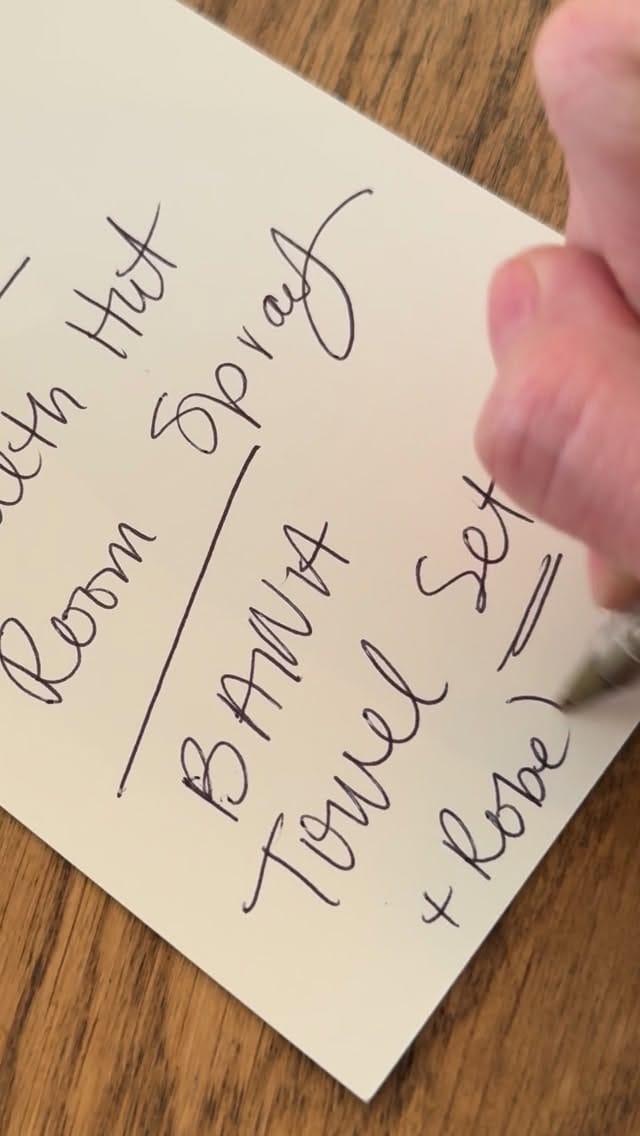 Hut
Room Spray
BAINA
Towel Set
+ Robe)